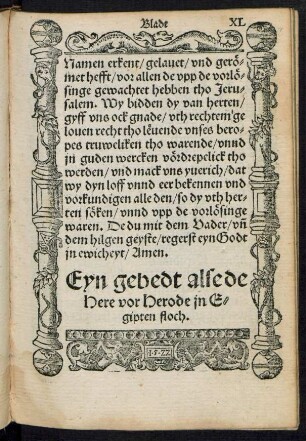 Blade XL
Namen erkent / gelauet / vnd gerö-
met hefft / vor allen de vpp de vorlö-
singe gewachtet hebben tho Jeru-
salem. Wy bidden dy van herten /
gyff vns ock gnade / vth rechtem ge
louen recht tho leuende vnses bero-
pes truweliken tho warende / vnnd
in guden wercken vördrepelick tho
werden / vnd mack vns yuerich / dat
wy dyn loff vnnd eer bekennen vnd
vorkundigen alle den / so dy vth her-
ten söken / vnnd vpp de vorlösinge
waren. De du mit dem Vader / vñ
dem hilgen geyste / regerst eyn Godt
jn ewicheyt / Amen.
Eyn gebedt alse de
Here vor Herode jn E-
gipten floch.